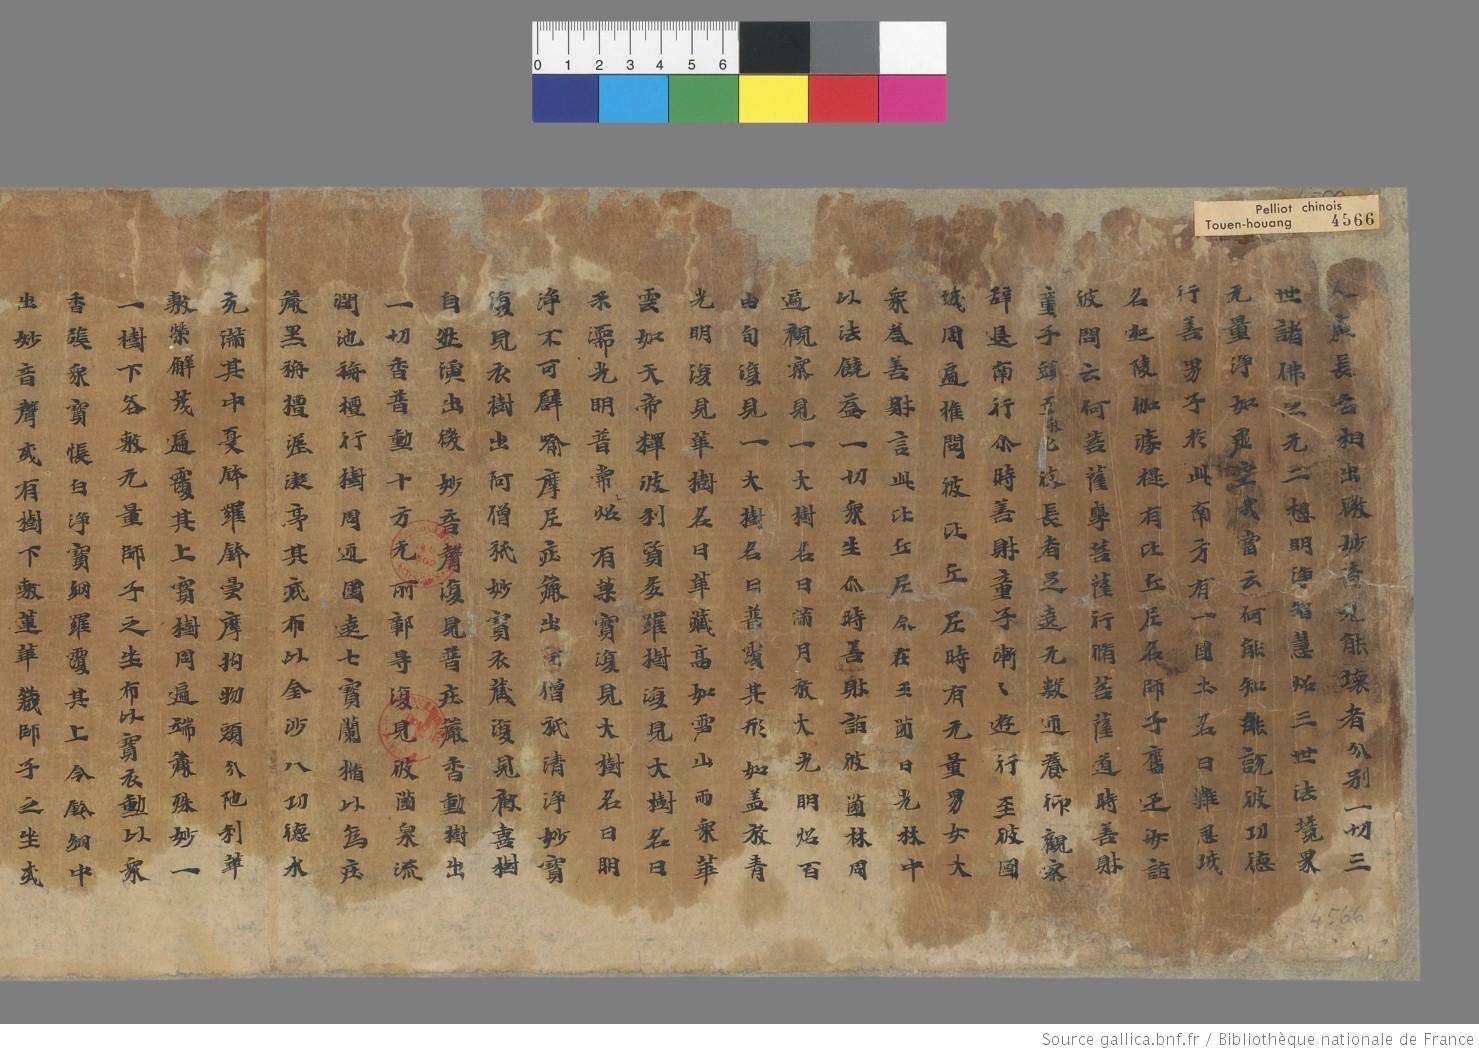 Pelliot chinois
Touen-houang 4566
人廣長舌相出微妙音无能壞者分別一切三
世諸佛以无二想明淨智慧炤三世法境界
无量淨如虛空我當云何能知能說彼功德
行善男子於此南方有一國土名曰難忍城
名迦陵伽婆提有比丘尼名師子奮迅汝詣
彼問云何菩薩學菩薩行脩菩薩道時善財
童子頭彼長者足遶无數迊養仰觀察
辞退南行尒時善財童子漸〻遊行至彼國
城周遍推問彼比丘尼時有无量男女大
衆荅善財言此比丘尼今在王薗日光林中
以法饒益一切衆生尒時善財詣彼薗林周
遍觀察見一大樹名曰滿月放大光明炤百
由旬復見一大樹名曰普覆其形如盖放青
光明復見華樹名曰華藏高如雪山雨衆華
雲如天帝釋波利質多羅樹復見大樹名曰
柔濡光明普常炤有菓寶復見大樹名曰明
淨不可譬喻摩尼庄嚴出阿僧祇清淨妙寶
復見衣樹出阿僧祇妙寶衣藏復見歡喜樹
自然演出微妙音聲復見普庄嚴香動樹出
一切香普勳十方无所鄣导復見彼薗泉流
淵池栴檀行樹周迊圍遶七寶蘭楯以為庄
嚴黑栴檀渥湊亭其底布以金沙八功德水
充滿其中憂鉢羅鉢曇摩拘物頭分陁利華
敷榮解茂遍覆其上寶樹周遍端嚴殊妙一
一樹下各敷无量師子之坐布以寶衣勳以衆
香張衆寶帳白淨寶網羅覆其上金鈴網中
出妙音聲或有樹下敷蓮華藏師子之坐或
4566
0 1 2 3 4 5 6
Source gallica.bnf.fr / Bibliothèque nationale de France